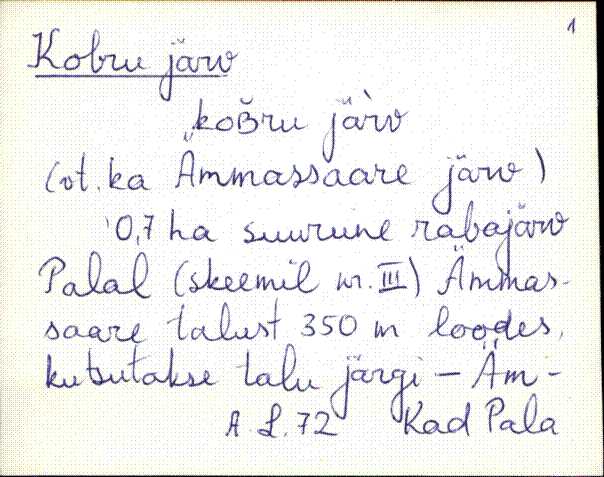 1
Kobru järv
„koʙ̆ru jä̀rv
(vt. ka Ämmassaare järv)
0,7 ha suurune rabajärv
Palal (skeemil nr. III) Ämmas-
saare talust 350 m loodes,
kutsutakse talu järgi – Äm-
A. L. 72 Kad Pala